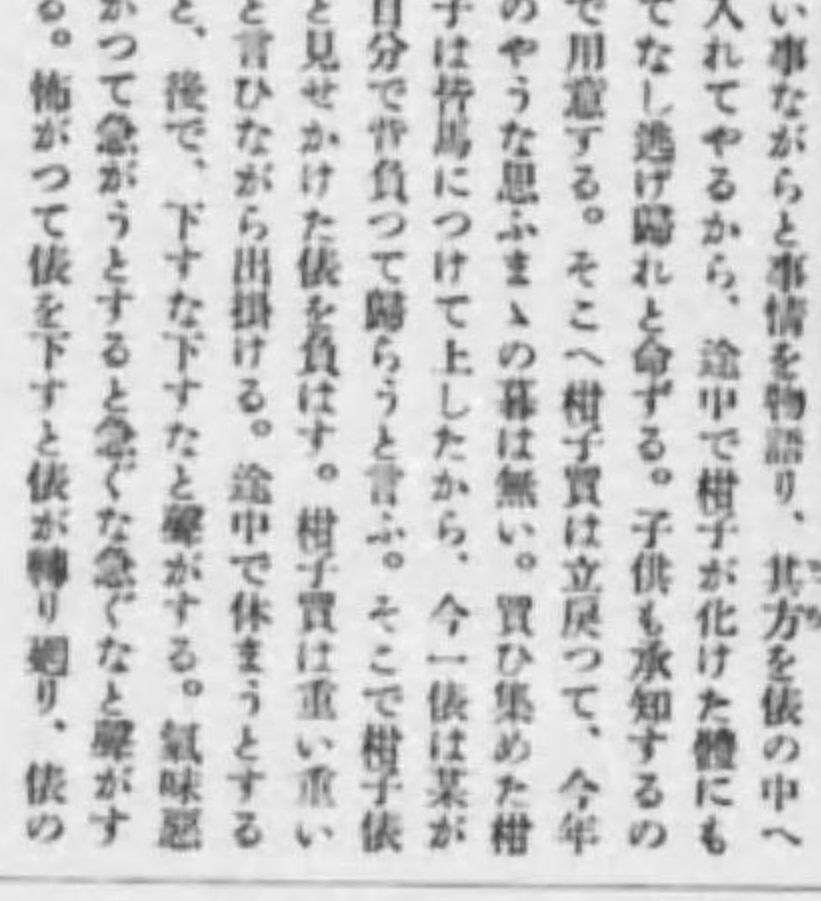 い事ながらと事情を物語り、其方を俵の中へ
入れてやるから、途中で柑子が化けた體にも
てなし逃げ歸れと命ずる。子供も承知するの
で用意する。そこへ柑子買は立戻つて、今年
のやうな思ふまゝの暮は無い。買ひ集めた柑
子は皆馬につけて上したから、今一俵は某が
自分で背負つて歸らうと言ふ。そこで柑子俵
と見せかけた俵を負はす。柑子買は重い重い
と言ひながら出掛ける。途中で休まうとする
と、後で、下すな下すなと聲がする。氣味惡
がつて急がうとすると急ぐな急ぐなと聲がす
る。怖がつて俵を下すと俵が轉り廻り、俵の